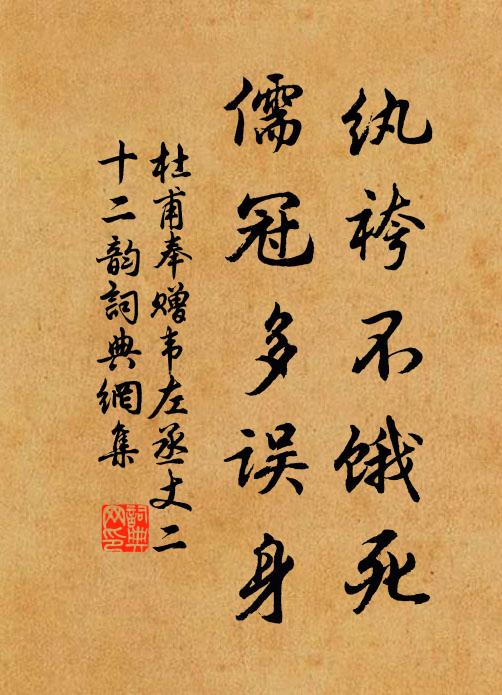 纨袴不饿死
儒冠多误身
杜甫奉赠韦左丞丈二
十二韵詞典網集
詞典网印